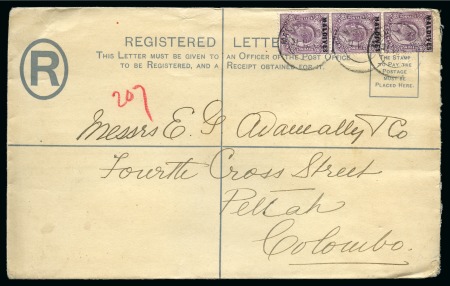 REGISTERED LETTER
THIS LETTER MUST BE GIVEN TO AN OFFICER OF THE POST OFFICE
TO BE REGISTERED, AND A RECEIPT OBTAINED FOR IT.
R
THE STAMP
TO PAY THE
POSTAGE
MUST BE
PLACED HERE.
MALDIVES
MALDIVES
MALDIVES
207
Messrs E. G Adamally & Co
Fourth Cross Street
Pettah
Colombo.